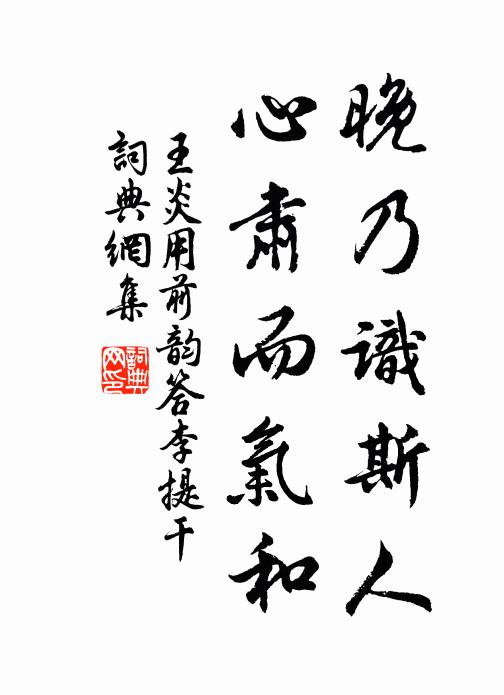 晚乃識斯人
心肅而氣和
王炎用前韵答李提干
詞典網集
詞典网印